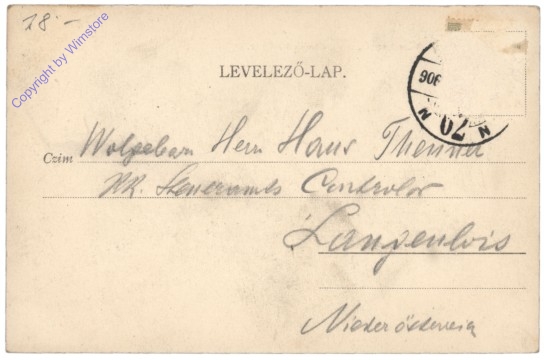 28.-
Copyright by Wimstore
LEVELEZŐ-LAP.
906
N 20 N
Czim Wolgeborn Herrn Hans
KK. Steueramts Controlor
Langenlois
Niederösterreich